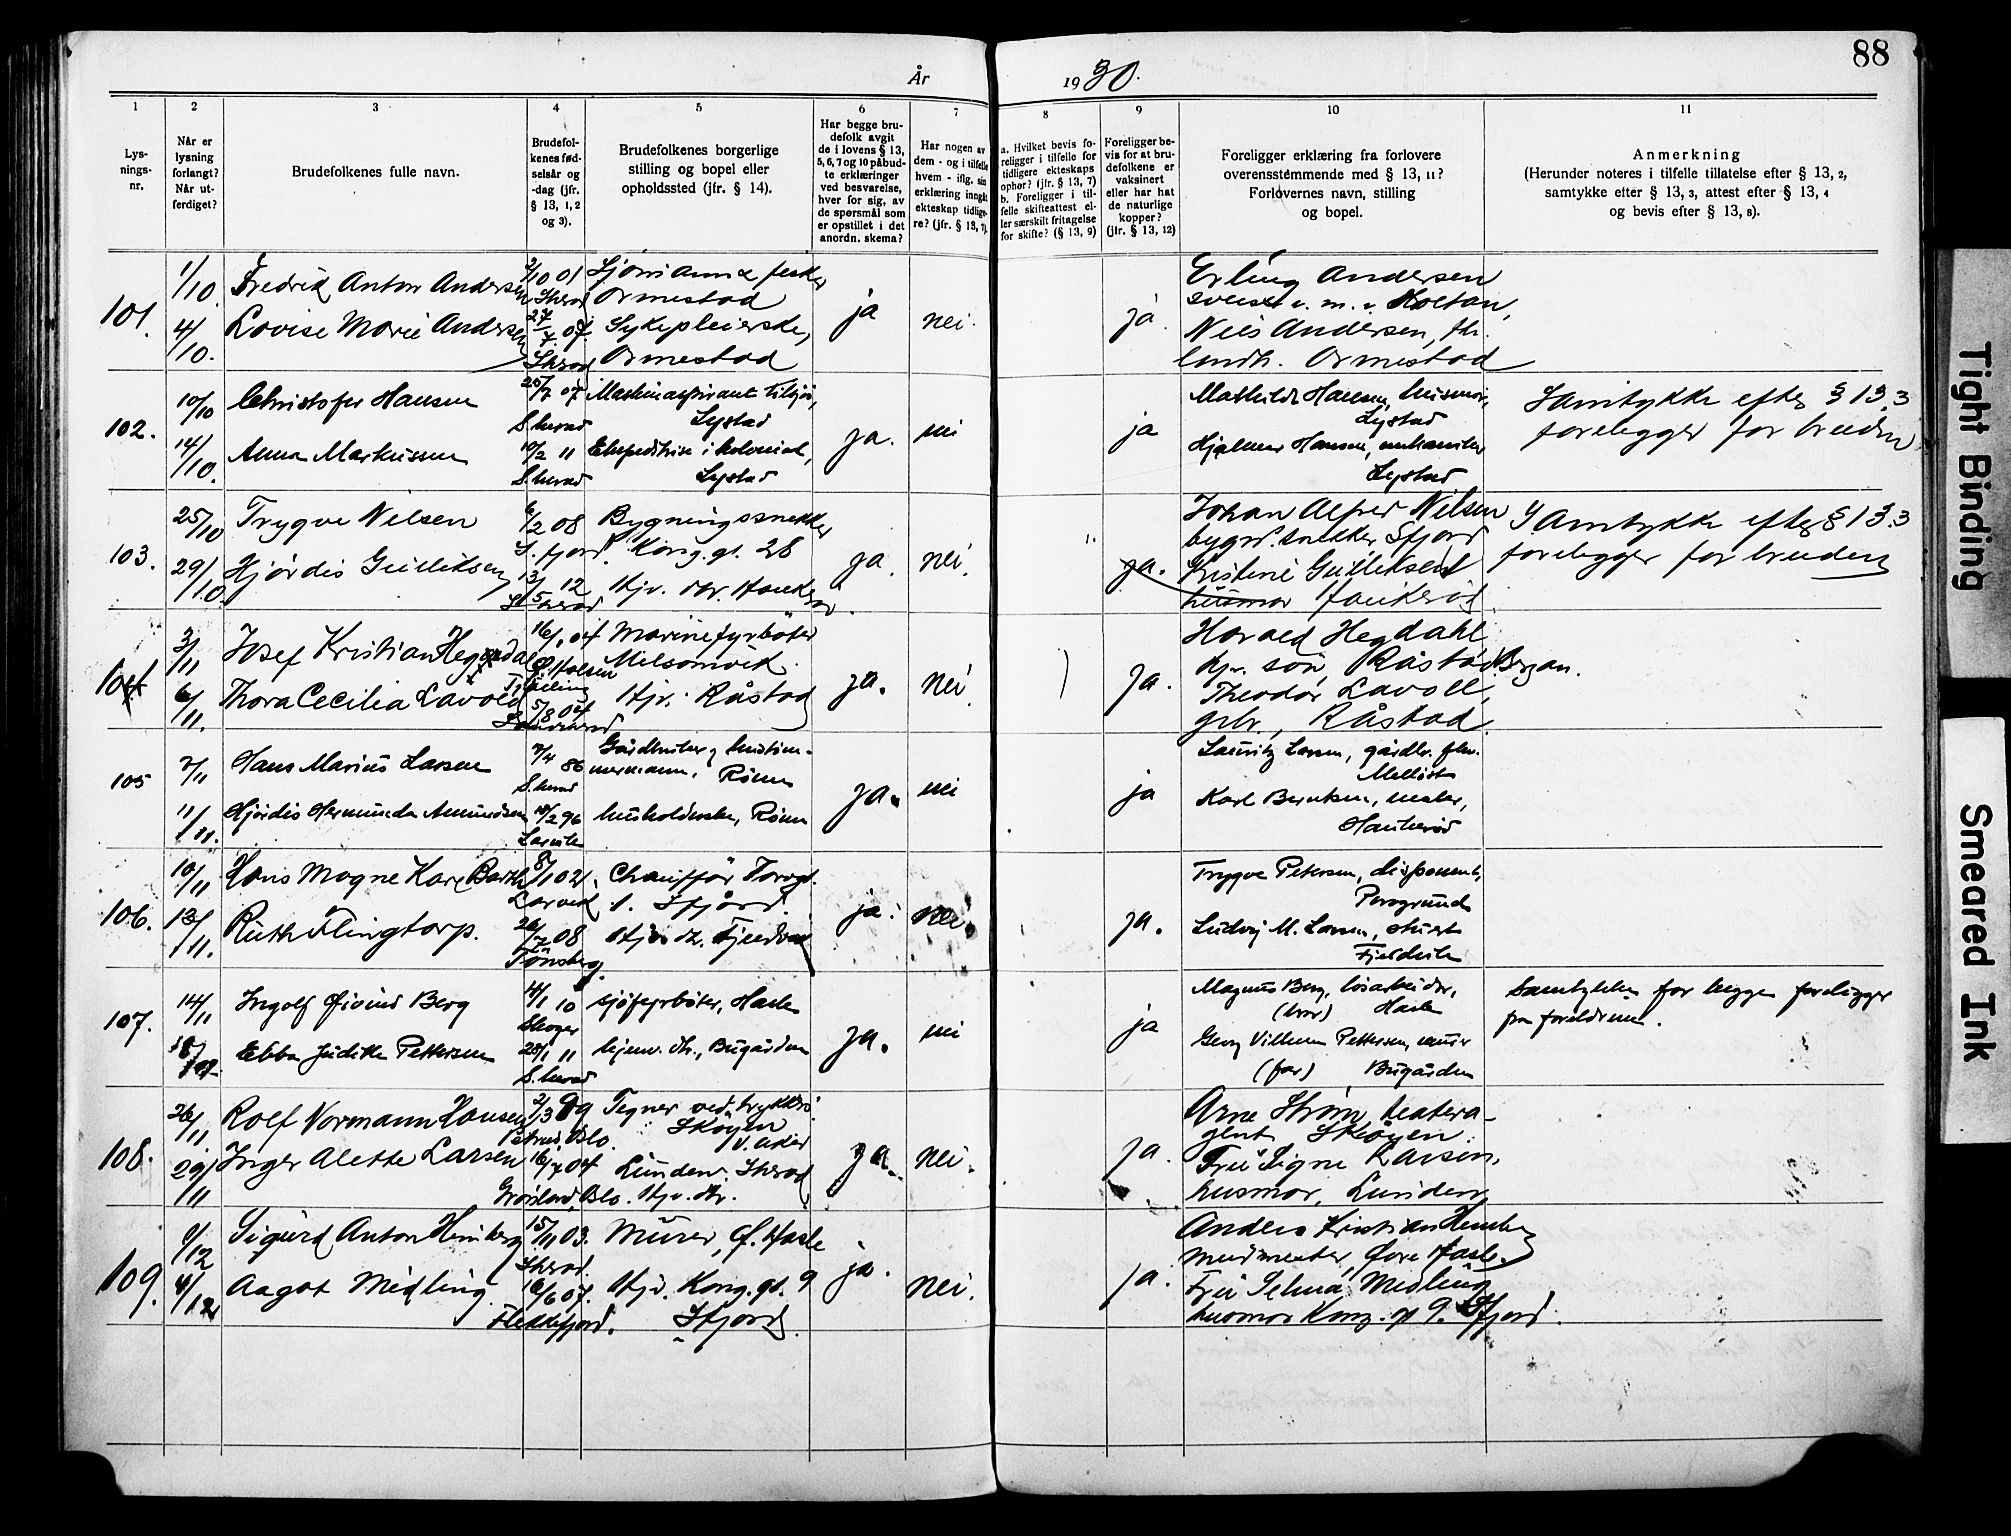 88
År 1930.
1
2
3
4
5
6
7
8
9
10
11
Lys-
nings-
nr.
Når er
lysning
forlangt?
Når ut-
ferdiget?
Brudefolkenes fulle navn.
Brudefol-
kenes fød-
selsår og
-dag (jfr.
§ 13, 1, 2
og 3).
Brudefolkenes borgerlige
stilling og bopel eller
opholdssted (jfr. § 14).
Har begge bru-
defolk avgit
de i lovens § 13,
5, 6, 7 og 10 påbud-
te erklæringer
ved besvarelse,
hver for sig, av
de spørsmål som
er opstillet i det
anordn. skema?
Har nogen av
dem - og i tilfelle
hvem - iflg. sin
erklæring inngått
ekteskap tidlige-
re? (jfr. § 13, 7).
a. Hvilket bevis fo-
religger i tilfelle for
tidligere ekteskaps
ophør? (jfr. § 13, 7)
b. Foreligger i til-
felle skifteattest el-
ler særskilt fritagelse
for skifte? (§ 13, 9)
Foreligger be-
vis for at bru-
defolkene er
vaksinert
eller har hat
de naturlige
kopper?
(jfr. § 13, 12)
Foreligger erklæring fra forlovere
overensstemmende med § 13, 11?
Forlovernes navn, stilling
og bopel.
Anmerkning
(Herunder noteres i tilfelle tillatelse efter § 13, 2,
samtykke efter § 13, 3, attest efter § 13, 4
og bevis efter § 13, 8).
101.
1/10
4/10.
Fredrik Anton Andersen
Lovise Marie Andersen
2/10 01
Sherad
27/7. 07.
Sherad
Sjömann & fisker
Ormestad
Sykepleierske,
Ormestad
ja
nei.
ja.
Erling Andersen
Nils Andersen, fh.
landh. Ormestad
102.
10/10
14/10.
Christofer Hansen
Anna Markussen
07
S.herad
10/2 11
S.herad
Maskinaspirant tilsjøs,
Lystad
Ekspeditrise i kolonial,
Lystad
ja.
nei
ja
Mathilde Hansen, husmor,
Lystad
Hjalmar Hansen, mekaniker
Lystad
Samtykke efter § 13.3
forelegger for bruden
103.
25/10
29/10.
Trygve Nilsen
Hjørdis Gulliksen
6/2 08
S.fjord
13/5 12
Sherad
Bygningssnekker
Kong.gt. 28
Hjv. dtr. Haukerød.
ja.
nei.
ja.
Johan Alfred Nilsen
bygn.snekker Sfjord
Kristine Gulliksen
husmor Haukerød.
Samtykke efter § 13.3
forelegger for bruden
104
3/11
6/11.
Josef Kristian Hegdal
Thora Cecilia Lavold
04
5/8 04
Sandeherad
Marinefyrbøter
Melsomvik.
Hjv. Råstad
ja.
nei
ja.
Harald Hegdahl
Råstad, Bergan.
Theodor Lavoll,
gbr., Råstad.
105
7/11
11/11.
Hans Marius Larsen
Hjørdis Hermunda Amundsen
7/4 86
S.herad
10/2 96
Larvik
Gårdbruker
Rönne
husholderske, Rönne
ja.
nei
ja
Lauritz Larsen, gårdbr.
Karl Berntsen, maler,
Haukerød
106.
10/11
13/11.
Hans Magne Karl Barth
Ruth Flingtorp.
8/1 02
Larvik
26/2 08
Tønsberg.
Chauffør Torvgt.
1. Sfjord.
ja.
nei.
ja.
Trygve Petersen, disponent,
Porsgrund
Ludvig M. Larsen,
107.
14/11
18/11.
Ingolf Øivind Berg
Ebba Judith Pettersen
4/1 10
Skoger
28/1 11
S.herad
sjøfyrbøter, Hasle
hjemv. dtr., Bugården
ja.
nei
ja
Magnus Berg, løsarbeider,
(bror) Hasle
Georg Vilhelm Pettersen, murer
(far) Bugården
Samtykke for begge foreligger
fra foreldrene.
108.
26/11
29/11
Rolf Normann Hansen
Inger Alette Larsen
2/3 89
Petrus, Oslo.
16/7 04
Grønland, Oslo.
Tegner ved trykkeri
Skøyen
V. Aker
Lunden. Sherad
Hjv. dtr.
ja.
nei.
ja.
Arne Strøm, teatera-
gent Skøyen.
Fru Signe Larsen,
husmor, Lunden
109.
1/12
4/12
Sigurd Anton Himberg
Aagot Midling
15/11 03.
Sherad.
16/6 07.
Flekkefjord.
Murer, Ø. Hasle
Hjv. Kong.gt. 9
Sfjord.
ja.
nei.
ja.
Anders Kristian Himberg
murmester, Øvre Hasle.
Fru Selma Midling
husmor Kong. gt 9. Sfjord.
Tight Binding
Smeared Ink